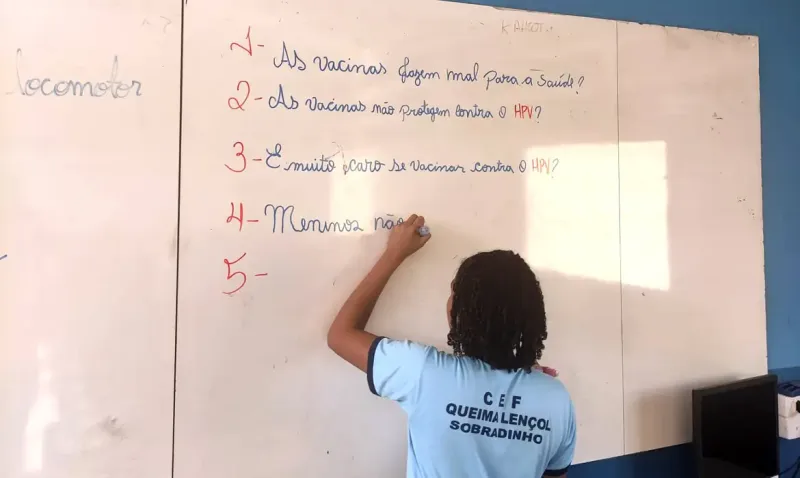 locomotor
1- As vacinas fazem mal para a saúde?
2- As vacinas não protegem contra o HPV?
3- É muito caro se vacinar contra o HPV?
4- Meninos não
5-
CEF
QUEIMA LENÇOL
SOBRADINHO